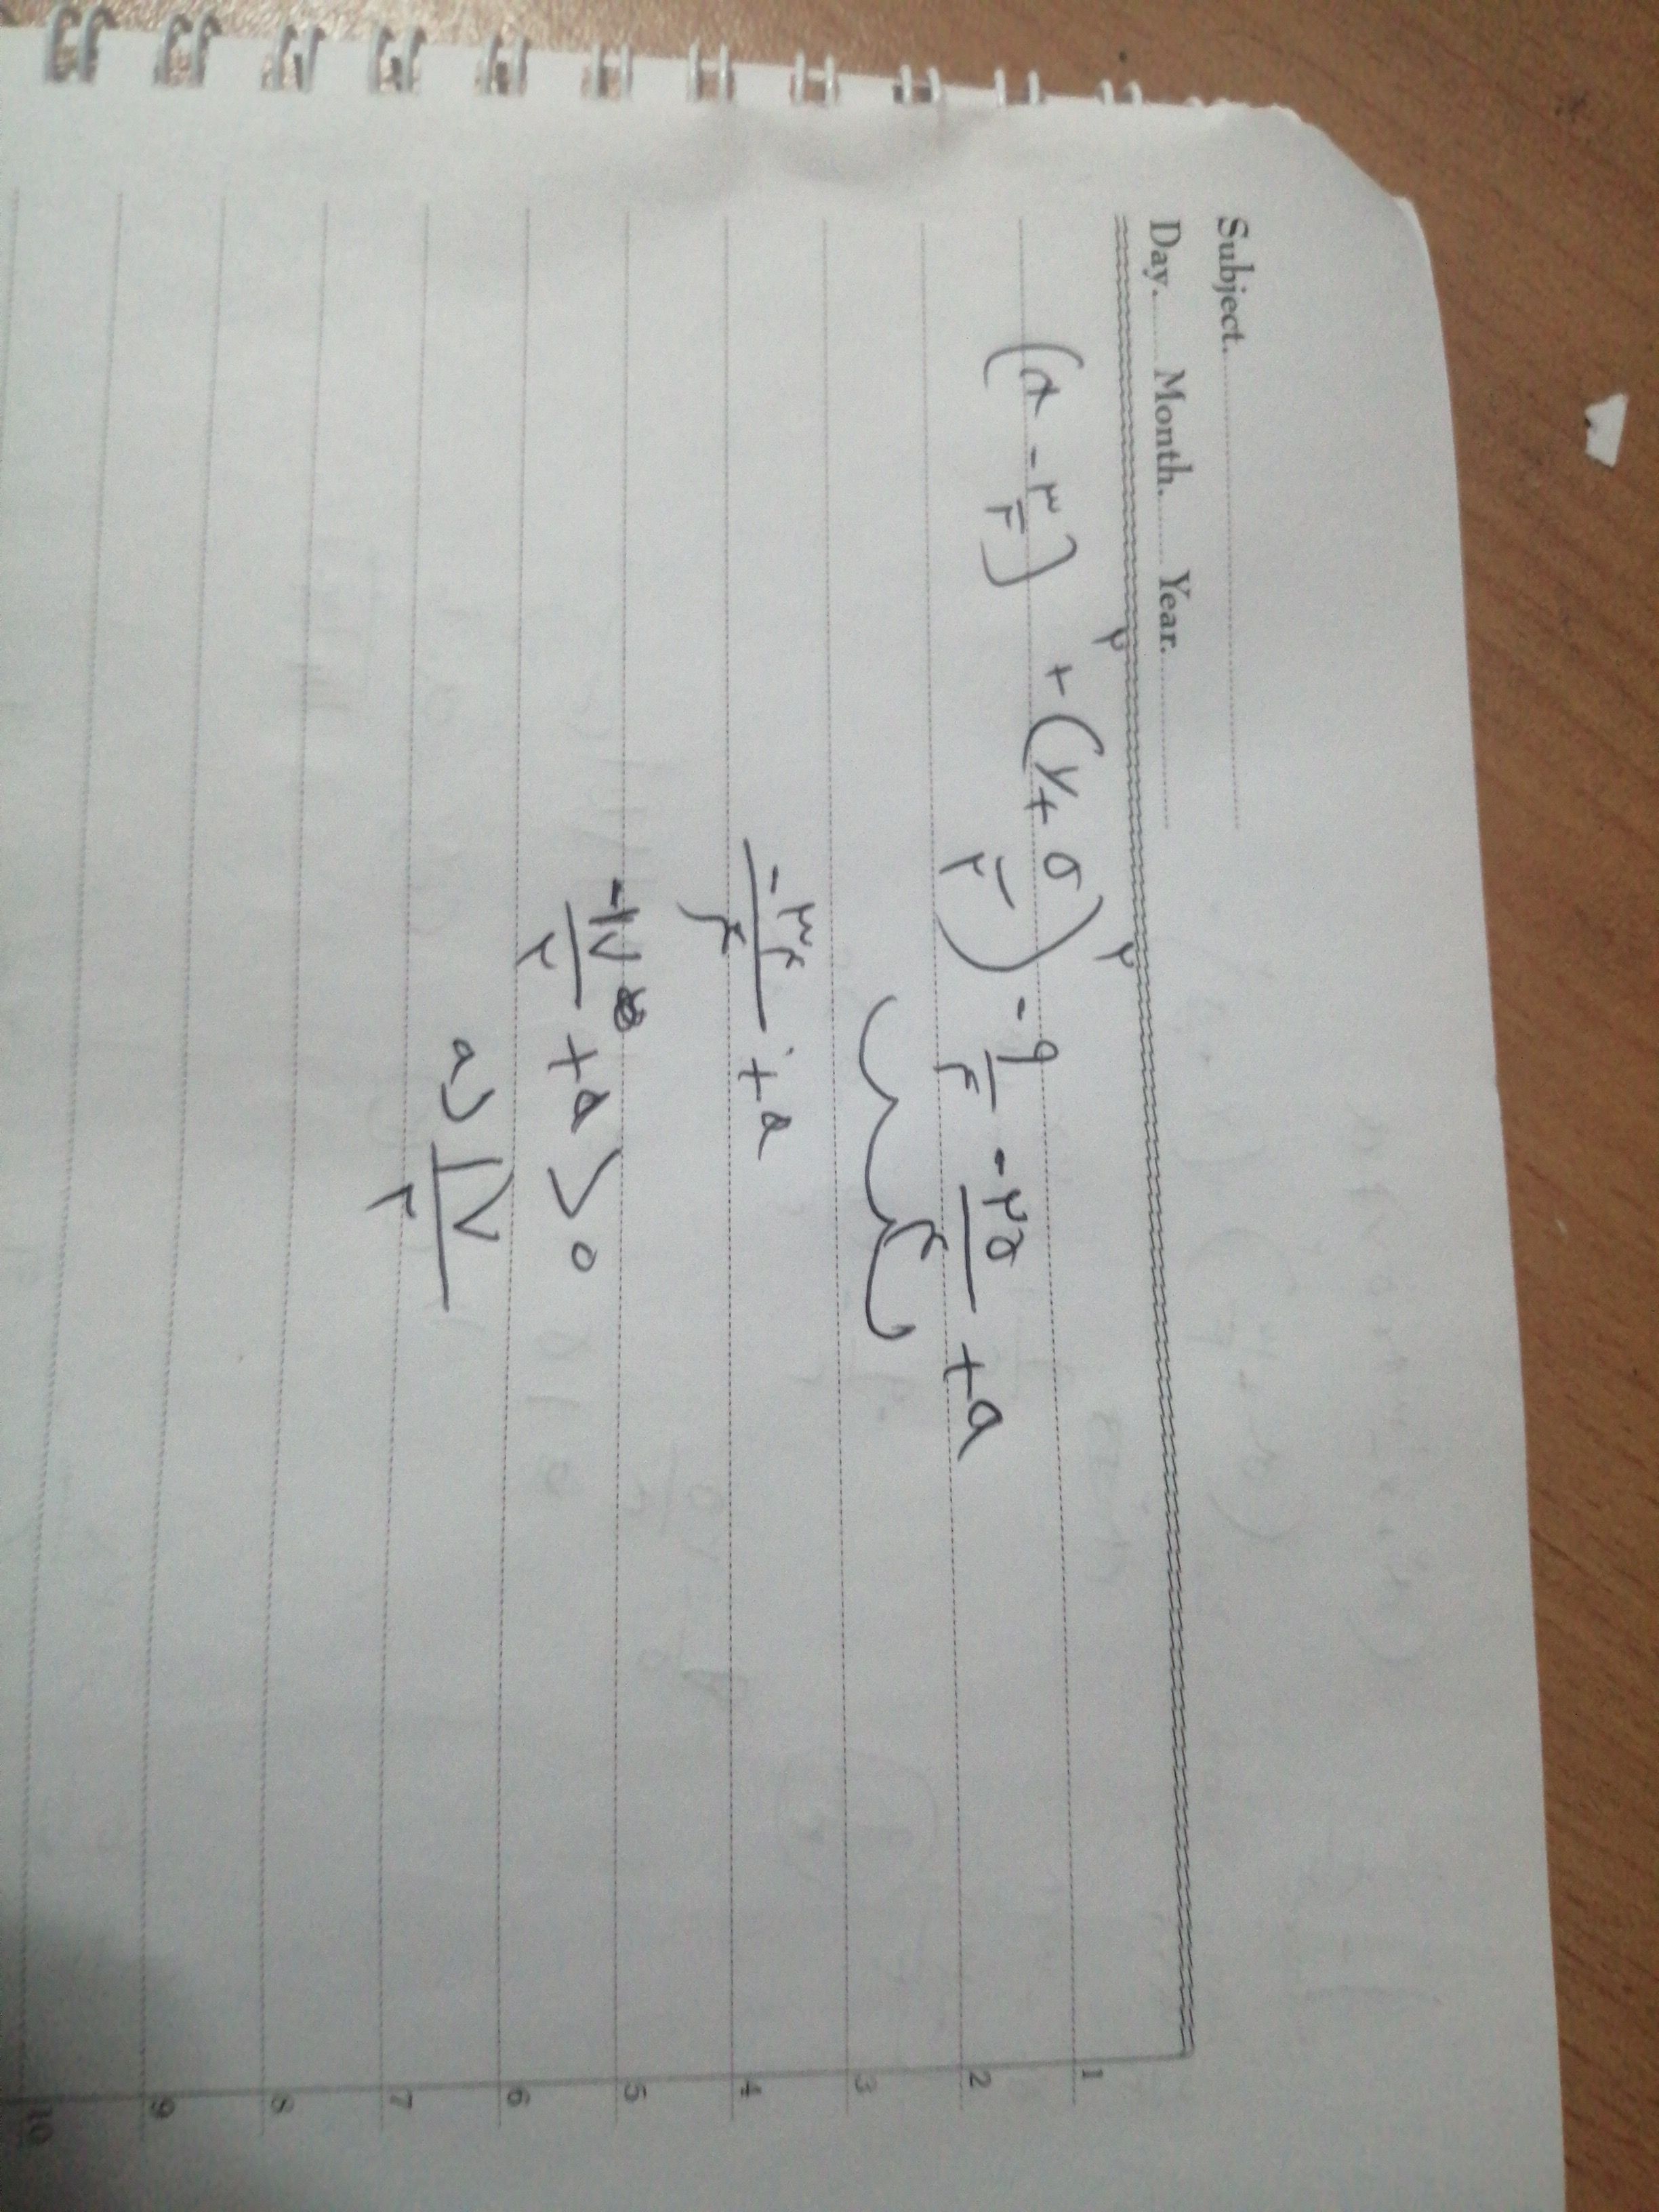 Subject.
Day. Month. Year.
(x - ۳/۲)^۲ + (y + ۵/۲)^۲ - ۹/۴ - ۲۵/۴ + a
-۳۴/۴ + a
-۱۷/۲ + a > 0
a > ۱۷/۲
1
2
3
4
5
6
7
8
9
10